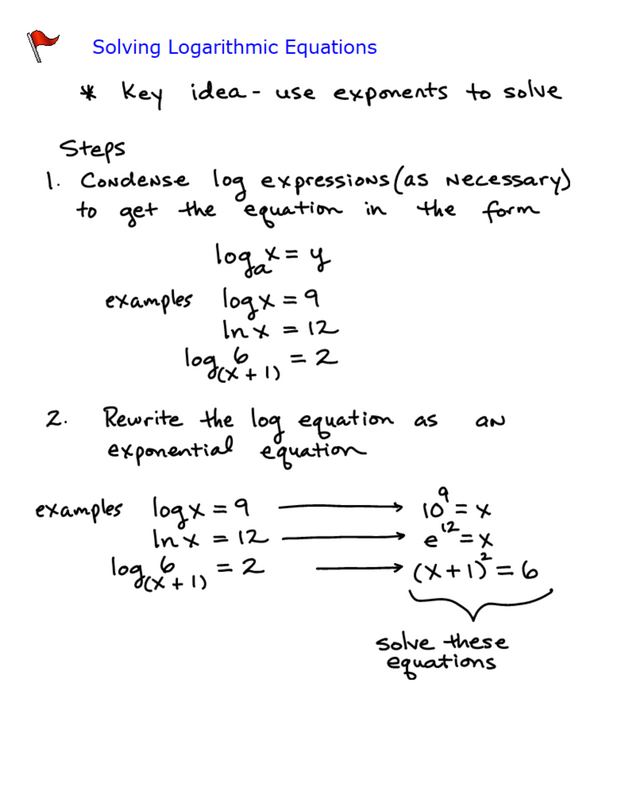 Solving Logarithmic Equations
* Key idea - use exponents to solve
Steps
1. Condense log expressions (as necessary)
to get the equation in the form
logₐx = y
examples log x = 9
ln x = 12
log₍ₓ ₊ ₁₎6 = 2
2. Rewrite the log equation as an
exponential equation
examples log x = 9 → 10⁹ = x
ln x = 12 → e¹² = x
log₍ₓ ₊ ₁₎6 = 2 → (x + 1)² = 6
solve these
equations